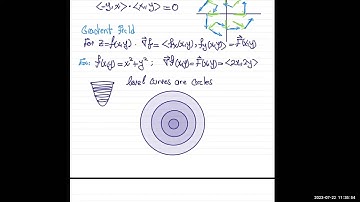 <-y, x> · <x, y> = 0
Gradient Field
For z = f(x,y) . ∇f = <fx(x,y), fy(x,y)> = F(x,y)
For: f(x,y) = x² + y² ; ∇f(x,y) = F(x,y) = <2x, 2y>
level curves are circles
2023-07-22 11:35:54